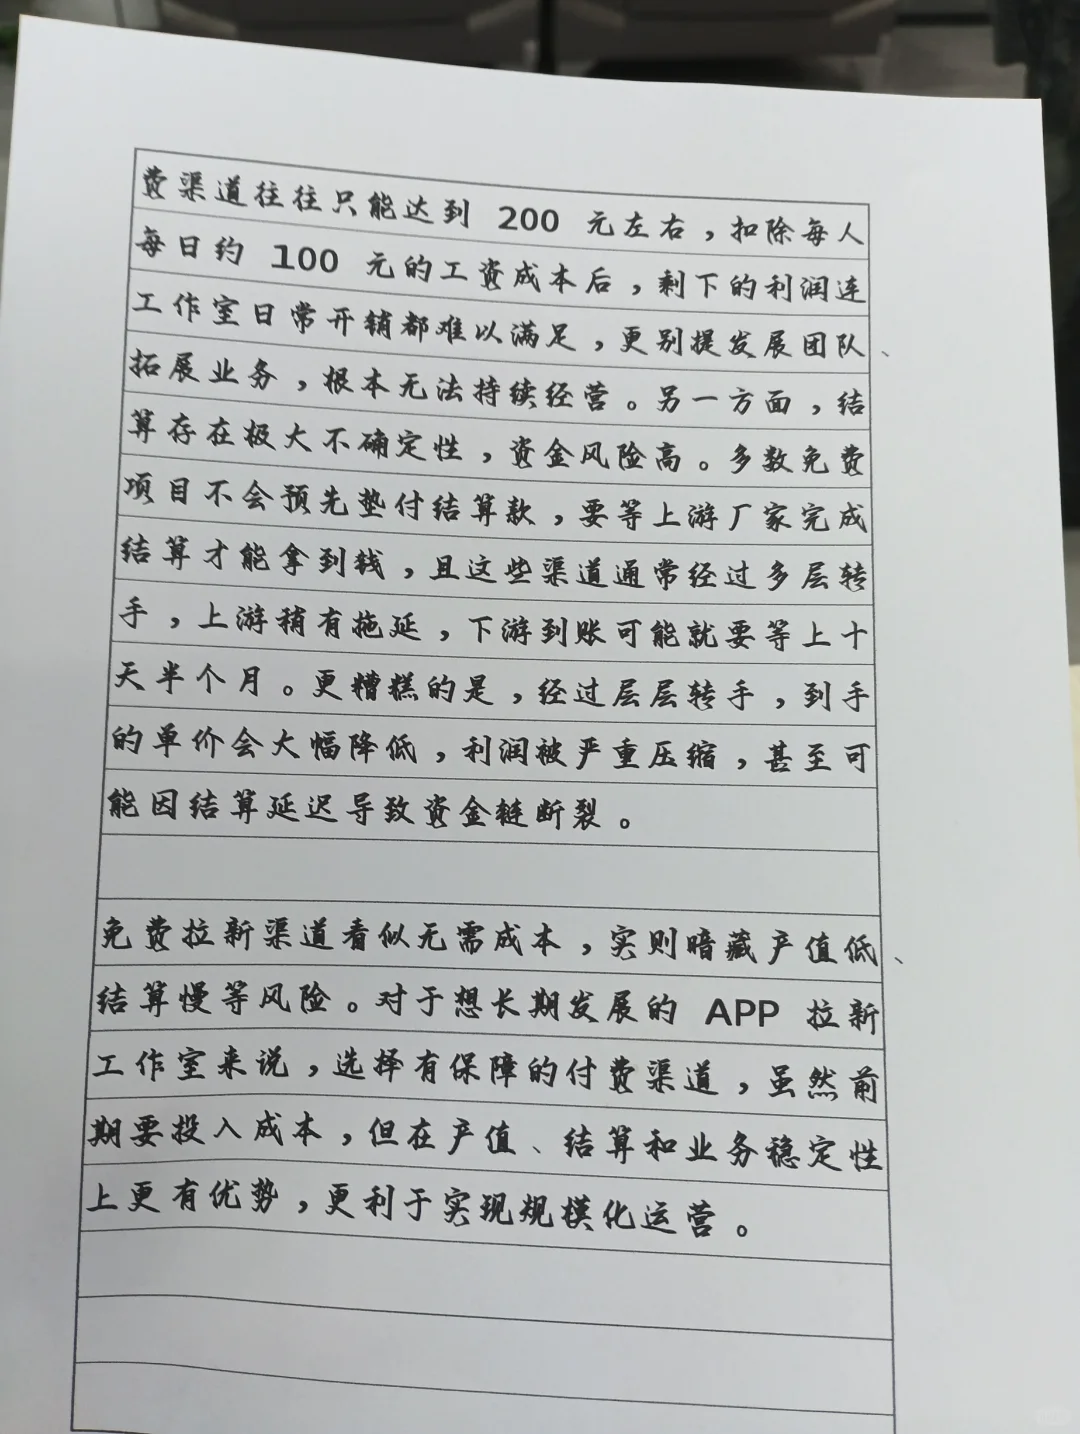 费渠道往往只能达到 200 元左右，扣除每人
每日约 100 元的工资成本后，剩下的利润连
工作室日常开销都难以满足，更别提发展团队、
拓展业务，根本无法持续经营。另一方面，结
算存在极大不确定性，资金风险高。多数免费
项目不会预先垫付结算款，要等上游厂家完成
结算才能拿到钱，且这些渠道通常经过多层转
手，上游稍有拖延，下游到账可能就要等上十
天半个月。更糟糕的是，经过层层转手，到手
的单价会大幅降低，利润被严重压缩，甚至可
能因结算延迟导致资金链断裂。
免费拉新渠道看似无需成本，实则暗藏产值低、
结算慢等风险。对于想长期发展的 APP 拉新
工作室来说，选择有保障的付费渠道，虽然前
期要投入成本，但在产值、结算和业务稳定性
上更有优势，更利于实现规模化运营。